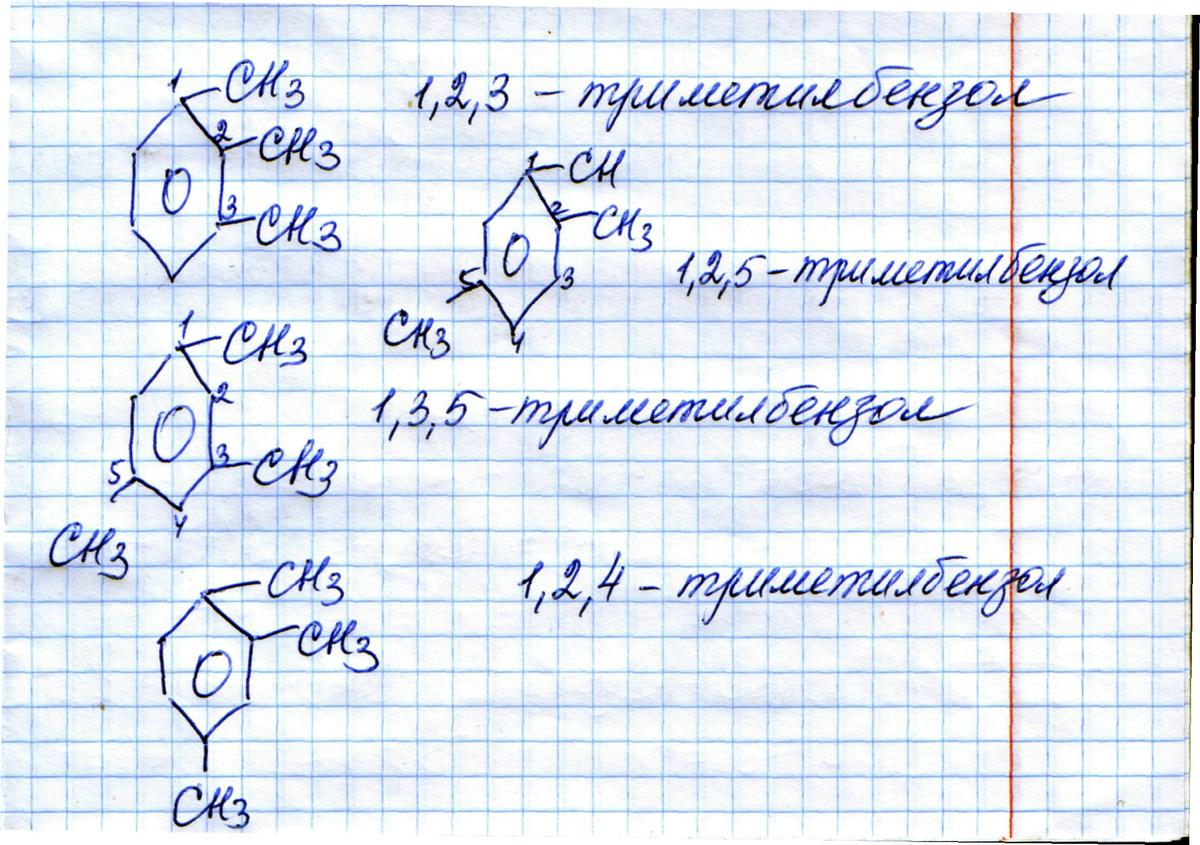 1 CH3
1,2,3 - триметилбензол
2 CH3
3 CH3
1 CH
2 CH3
3
4
5
CH3
1,2,5 - триметилбензол
1 CH3
2
3 CH3
4
5
CH3
1,3,5 - триметилбензол
CH3
CH3
CH3
1,2,4 - триметилбензол